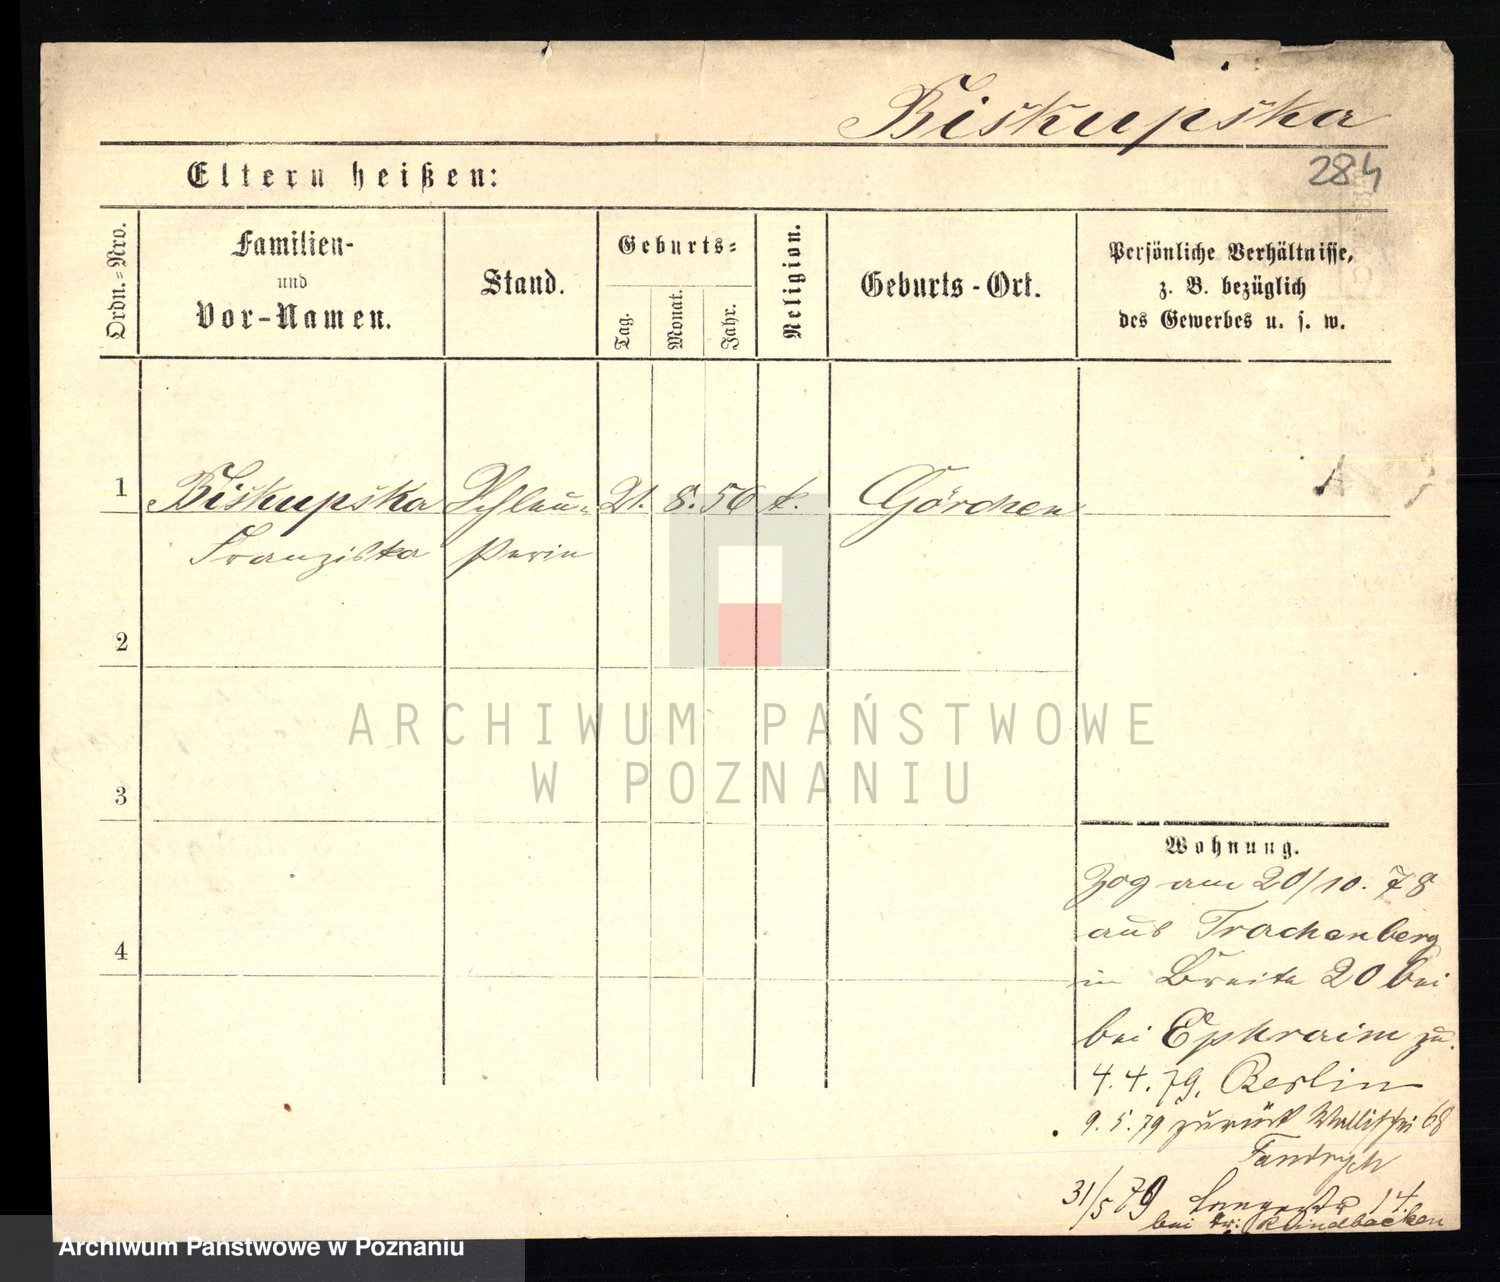 Biskupska
284
Eltern heißen:
Ordn.=Nro.
Familien-
und
Vor-Namen.
Stand.
Geburts=
Tag.
Monat.
Jahr.
Religion.
Geburts-Ort.
Persönliche Verhältnisse,
z. B. bezüglich
des Gewerbes u. s. w.
1 Biskupska Schleu= 21. 8. 56 k. Görchen
Franziska ßerin
2
3
4
ARCHIWUM PAŃSTWOWE
W POZNANIU
Wohnung.
Zog am 20/10. 78
aus Trachenberg
in Breite 20 bei
bei Ephraim zu.
4. 4. 79. Berlin
9. 5. 79 zurück Wallischei 68
31/5 79 14.
bei
Archiwum Państwowe w Poznaniu